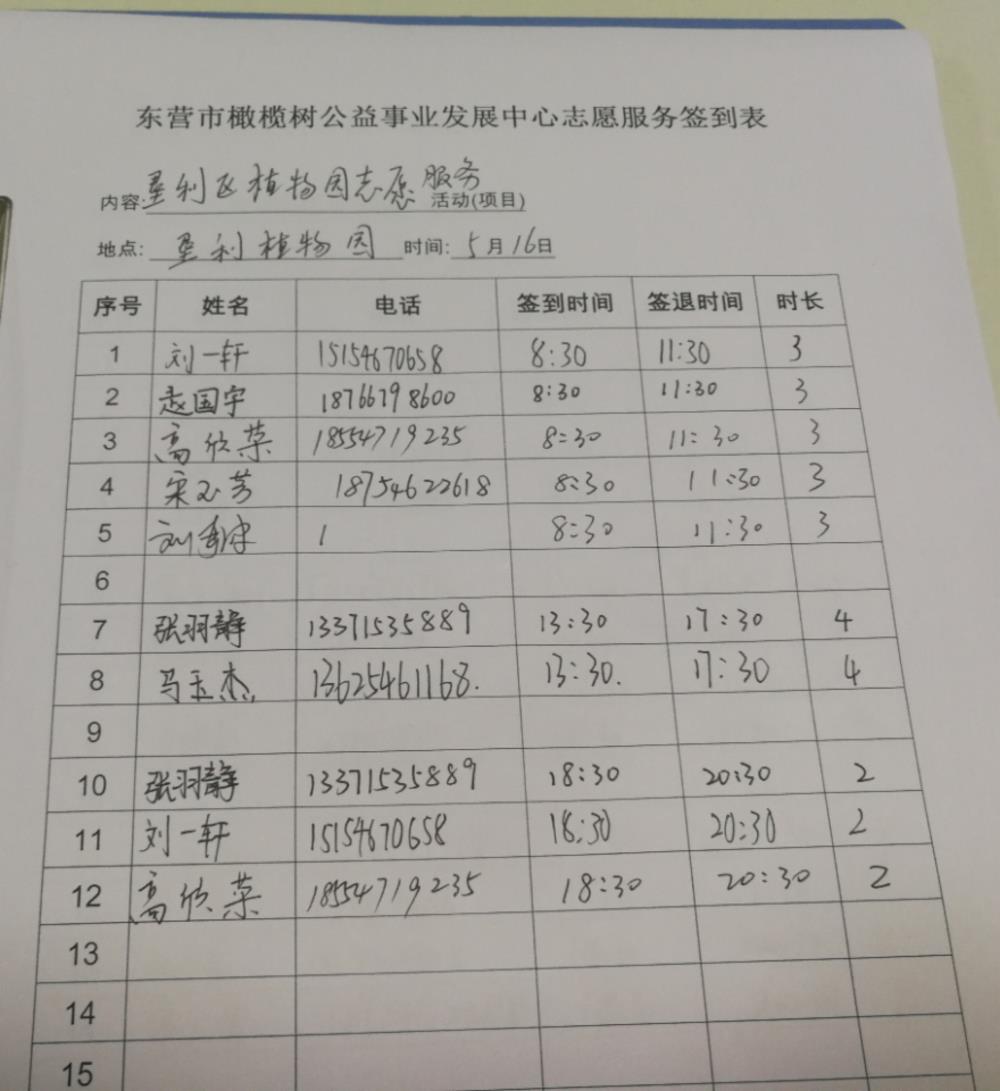 东营市橄榄树公益事业发展中心志愿服务签到表
内容:垦利区植物园志愿服务活动(项目)
地点:垦利植物园 时间:5月16日
序号 姓名 电话 签到时间 签退时间 时长
1 刘一轩 15154670658 8:30 11:30 3
2 赵国宇 18766798600 8:30 11:30 3
3 高欣荣 18554719235 8:30 11:30 3
4 宋玉芳 18754622618 8:30 11:30 3
5 刘 1 8:30 11:30 3
6
7 张羽静 13371535889 13:30 17:30 4
8 马玉杰 13625461168. 13:30. 17:30 4
9
10 张羽静 13371535889 18:30 20:30 2
11 刘一轩 15154670658 18:30 20:30 2
12 高欣荣 18554719235 18:30 20:30 2
13
14
15